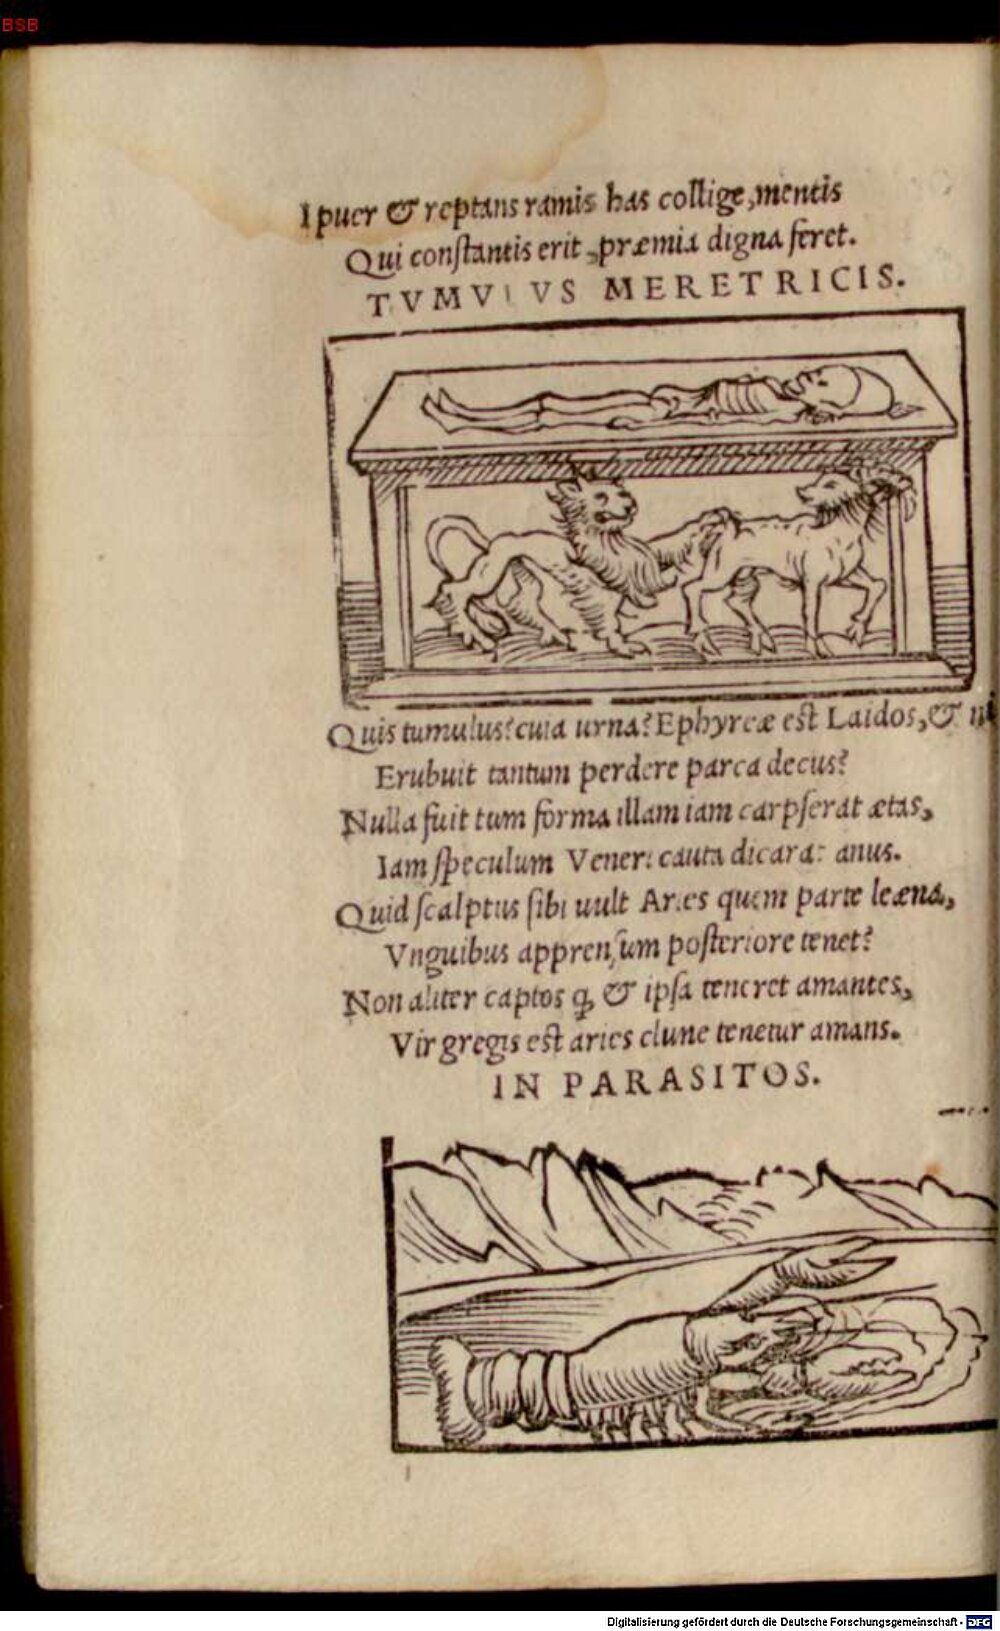 BSB
I puer & reptans ramis has collige, mentis
Qui constantis erit, præmia digna feret.
TVMVLVS MERETRICIS.
Quis tumulus? cuia urna? Ephyreæ est Laidos, &
Erubuit tantum perdere parca decus?
Nulla fuit tum forma illam iam carpserat ætas,
Iam speculum Veneri cauta dicarat anus.
Quid scalptus sibi uult Aries quem parte leæna,
Vnguibus apprensum posteriore tenet?
Non aliter captos ꝙ & ipsa teneret amantes,
Vir gregis est aries clune tenetur amans.
IN PARASITOS.
Digitalisierung gefördert durch die Deutsche Forschungsgemeinschaft - DFG